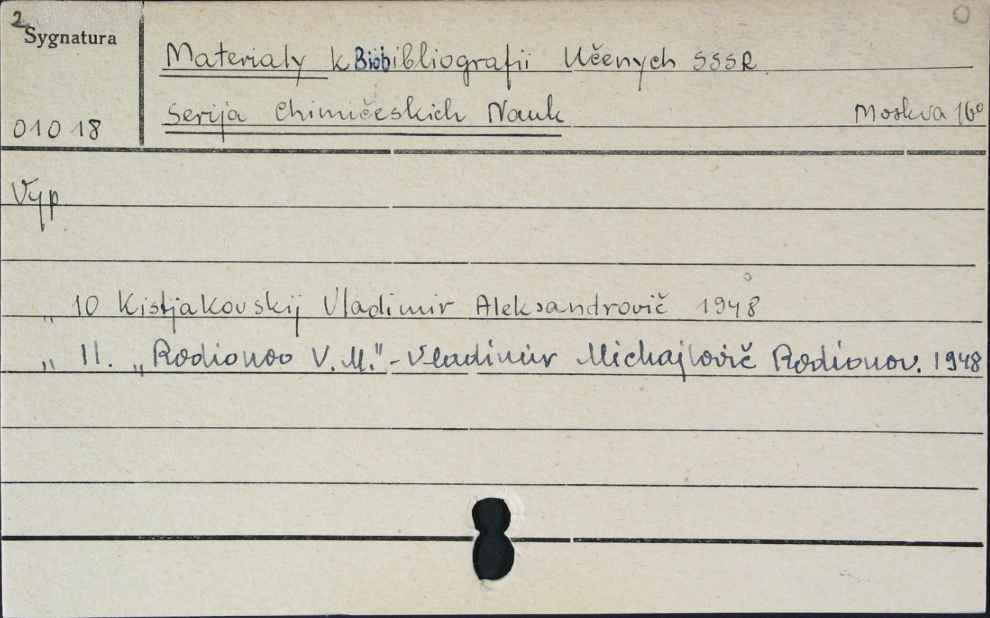 2
Sygnatura
Materialy k Biobibliografii Učenych SSSR
Serija Chimičeskich Nauk Moskva 16°
010 18
Vyp
„ 10 Kistjakovskij Vladimir Aleksandrovič 1948
„ 11. „Rodionov V.M." - Vladimir Michajlovič Rodionov. 1948